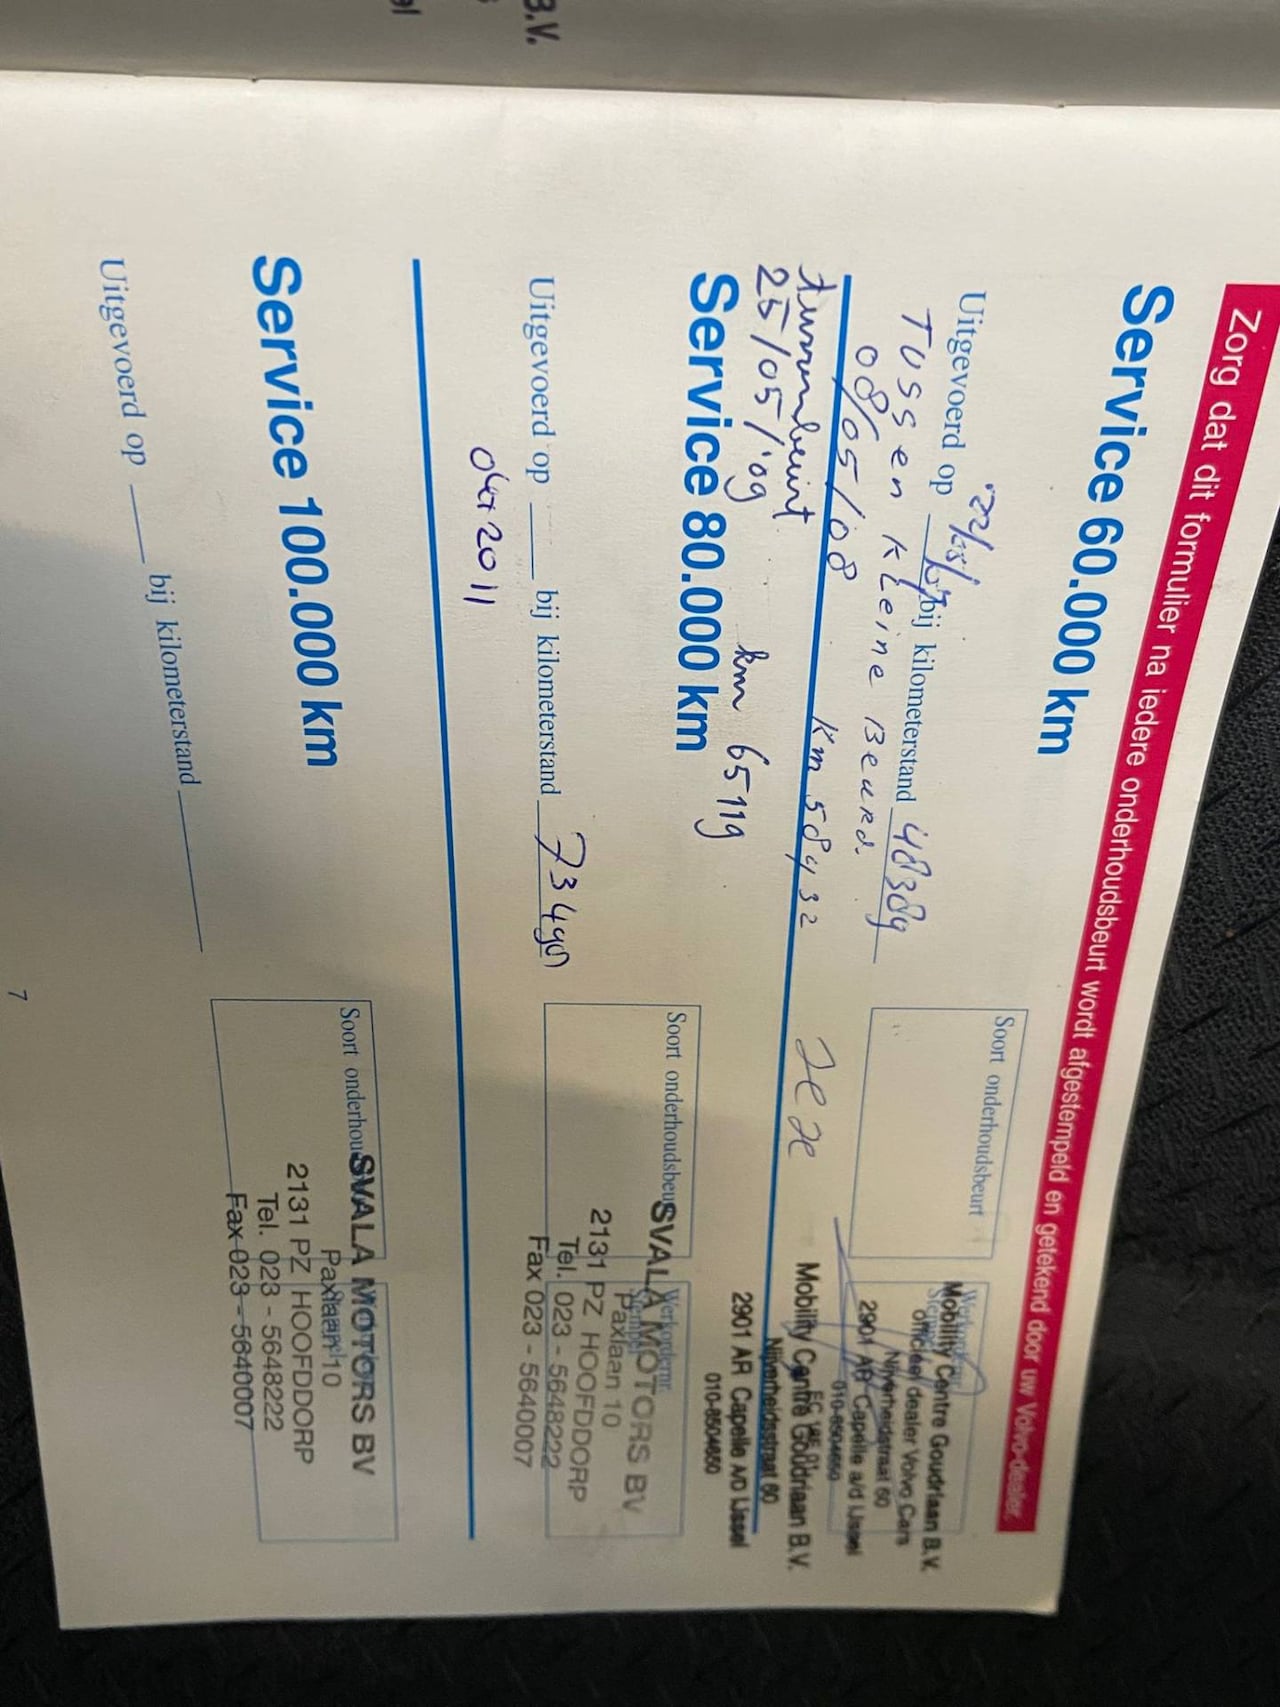 B.V.
Zorg dat dit formulier na iedere onderhoudsbeurt wordt afgestempeld en getekend door uw Volvo-dealer.
Service 60.000 km
Uitgevoerd op bij kilometerstand 48389
Tussen kleine Beurd.
08/05/08 Km 58432
Soort onderhoudsbeurt
Mobility Centre Goudriaan B.V.
officieel dealer Volvo Cars
Nijverheidstraat 60
2901 AR Capelle a/d IJssel
010-8504650
25/05/'09 km 65119
Mobility Centre Goudriaan B.V.
Nijverheidsstraat 60
2901 AR Capelle A/D IJssel
010-8504650
Service 80.000 km
Uitgevoerd op bij kilometerstand
2011
Soort onderhoudsbeurt
Werkordernr.
Stempel
SVALA MOTORS BV
Paxlaan 10
2131 PZ HOOFDDORP
Tel. 023 - 5648222
Fax 023 - 5640007
Service 100.000 km
Uitgevoerd op bij kilometerstand
Soort onderhou
SVALA MOTORS BV
Paxlaan 10
2131 PZ HOOFDDORP
Tel. 023 - 5648222
Fax 023 - 5640007
7